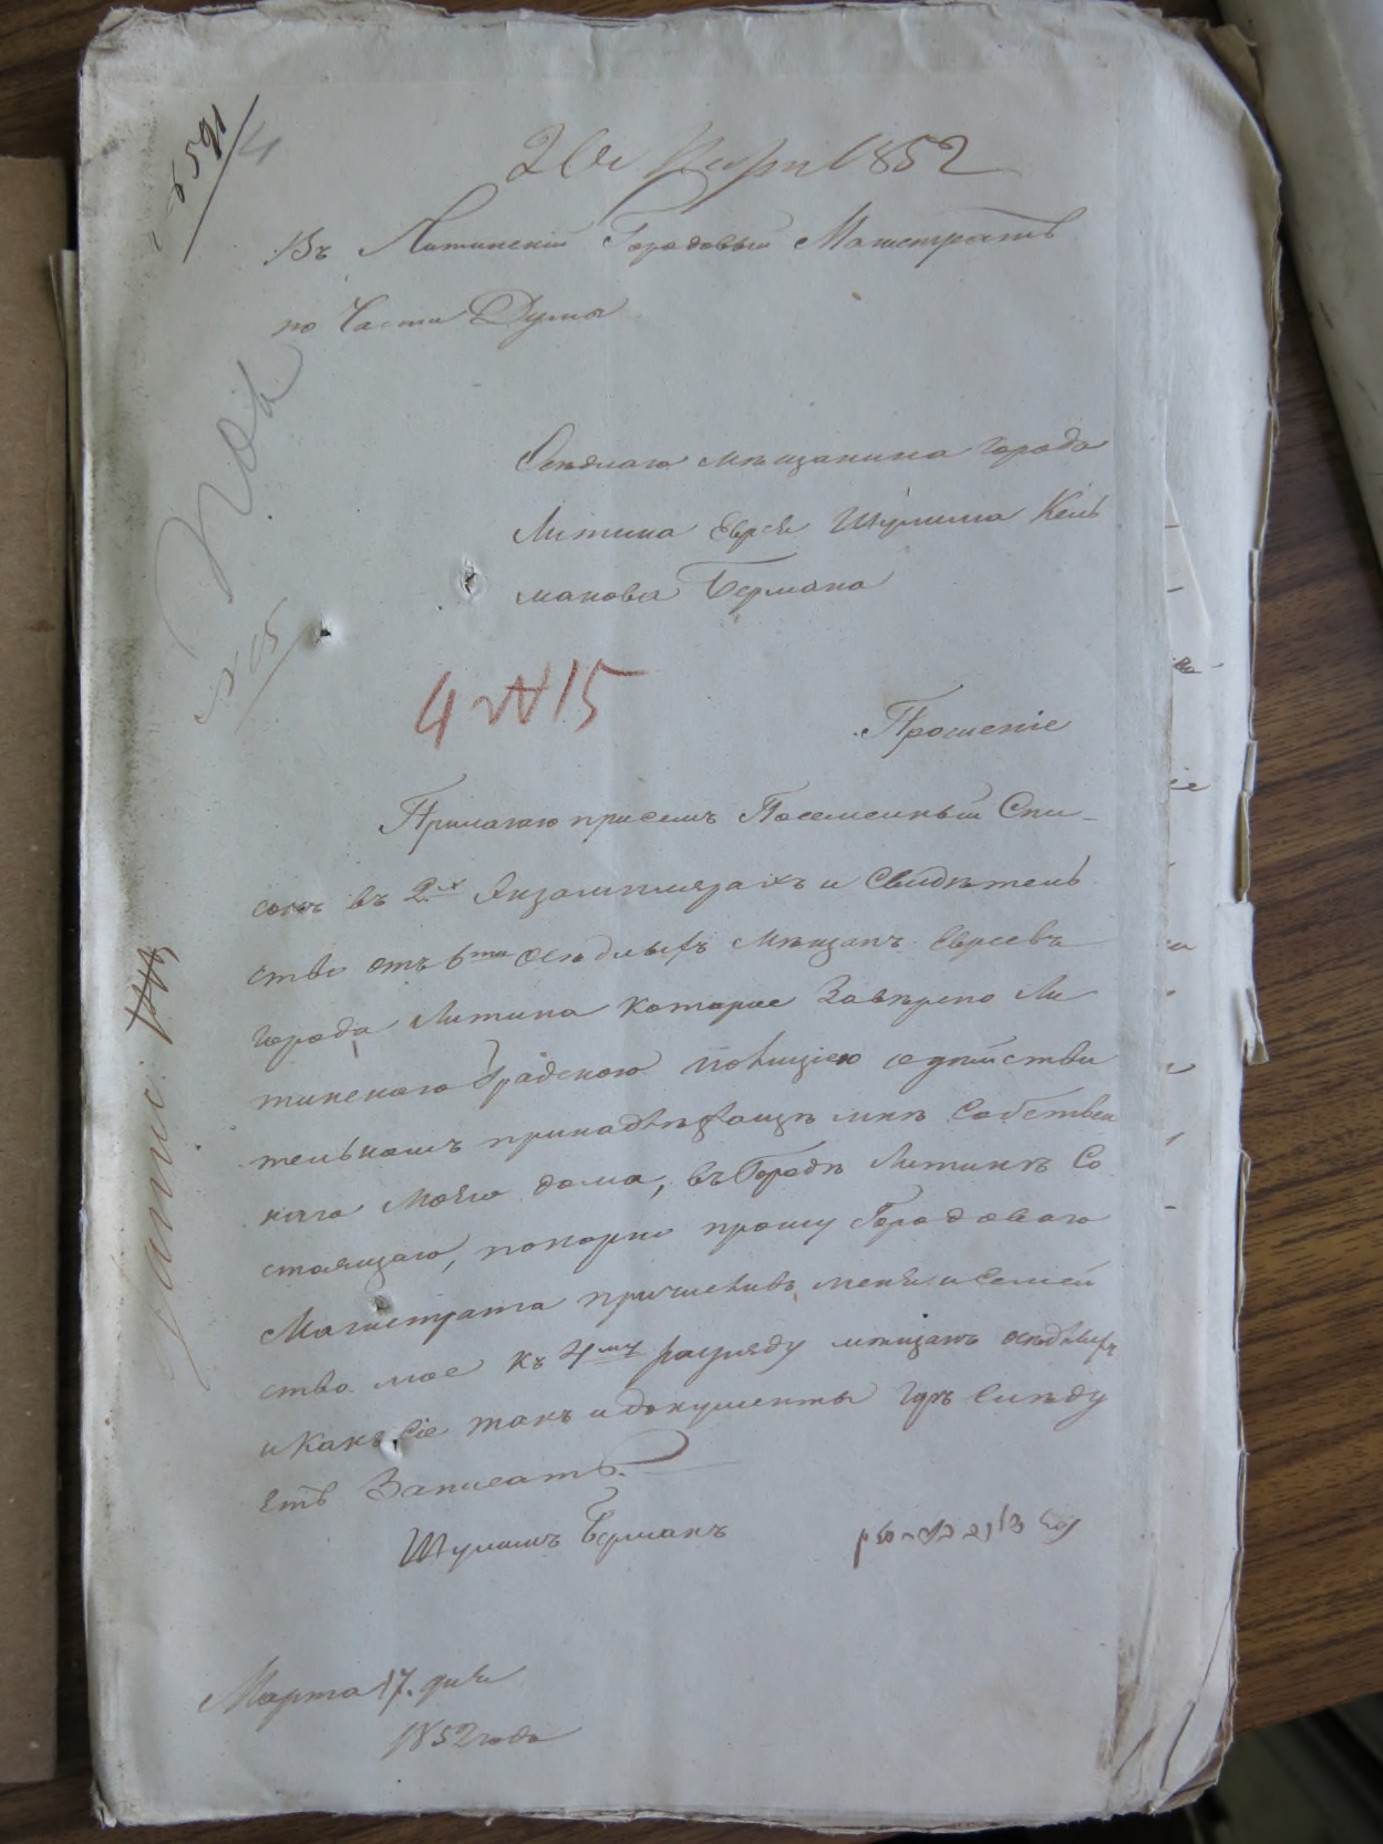 591/4
20 Марта 1852
Въ Литинскій Городовый Магистратъ
по Части Думы
Осѣдлаго мѣщанина города
Литина Еврея Шулима Кель
манова Бермана
№ 15
4 № 15
Прошеніе
Прилагаю присемъ Посемейный Спи-
сокъ въ 2х Экземплярахъ и Свидѣтель
ство отъ 6ти осѣдлыхъ мѣщанъ Евреевъ
города Литина которое Завѣрено Ли
тинскою Градскою полиціею о дѣйстви
тельномъ принадлежащѣ мнѣ Собствен
наго моего дома, въ Городѣ Литинѣ Со
стоящаго, покорно прошу Городоваго
Магистрата причислить меня и семей
ство мое къ 4му разряду мѣщанъ осѣдлыхъ
и Какъ Сіе такъ и документы гдѣ Слѣду
етъ Записать.
Шулимъ Берманъ
Марта 17. дня
1852 года